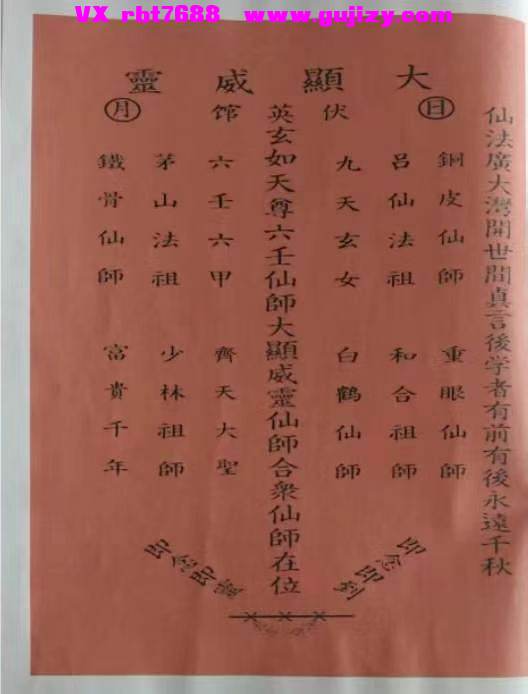 VX rbt7688 www.gujizy.com
大顯威靈
仙法廣大灣開世間眞言後学者有前有後永遠千秋
日
銅皮仙師 重眼仙師
呂仙法祖 和合祖師
伏
九天玄女 白鶴仙師
英玄如天尊六壬仙師大顯威靈仙師合衆仙師在位
馆
六壬六甲 齊天大聖
茅山法祖 少林祖師
月
鐵骨仙師 富貴千年
叩念叩到
叩念叩靈